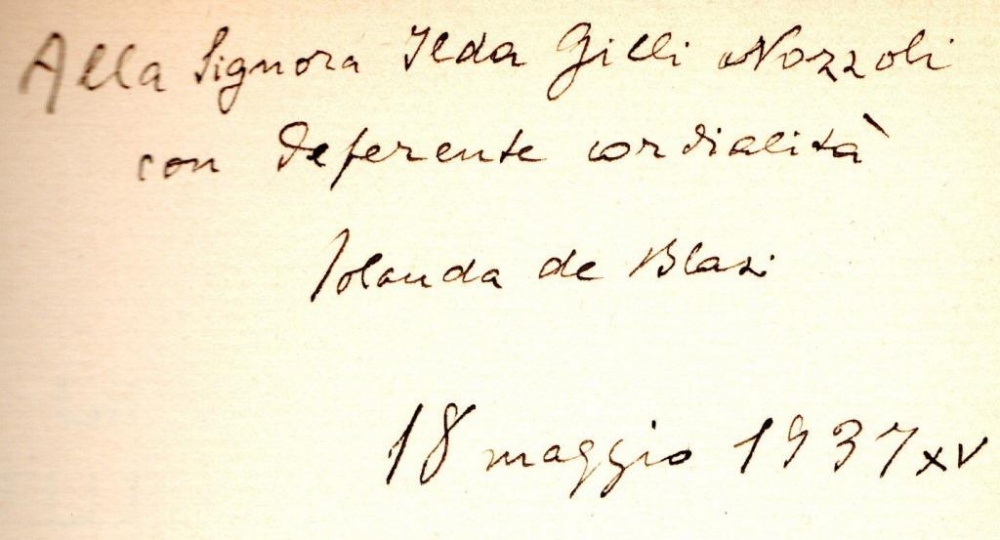 Alla Signora Ilda Gilli Nozzoli
con deferente cordialità
Jolanda de Blasi
18 maggio 1937 XV